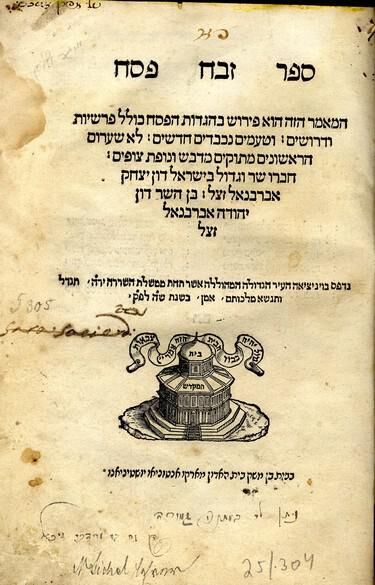 ספר זבח פסח
המאמר הזה הוא פירוש בהגדות הפסח כולל פרשיות
ודרושים: וטעמים נכבדים חדשים: לא שערום
הראשונים מתוקים מדבש ונופת צופים:
חברו שר וגדול בישראל דון יצחק
אברבנאל זצל: בן השר דון
יהודה אברבנאל
זצל
נדפס בויניציאה העיר הגדולה המהוללה אשר תחת ממשלת השררה ירה׳ תגדל
ותנשא מלכותם׳ אמן׳ בשנת שה לפק׳
5305
בית
המקדש
בבית בן משק בית האדון מארקו אנטוניאו יושטיניאנו
25/.304